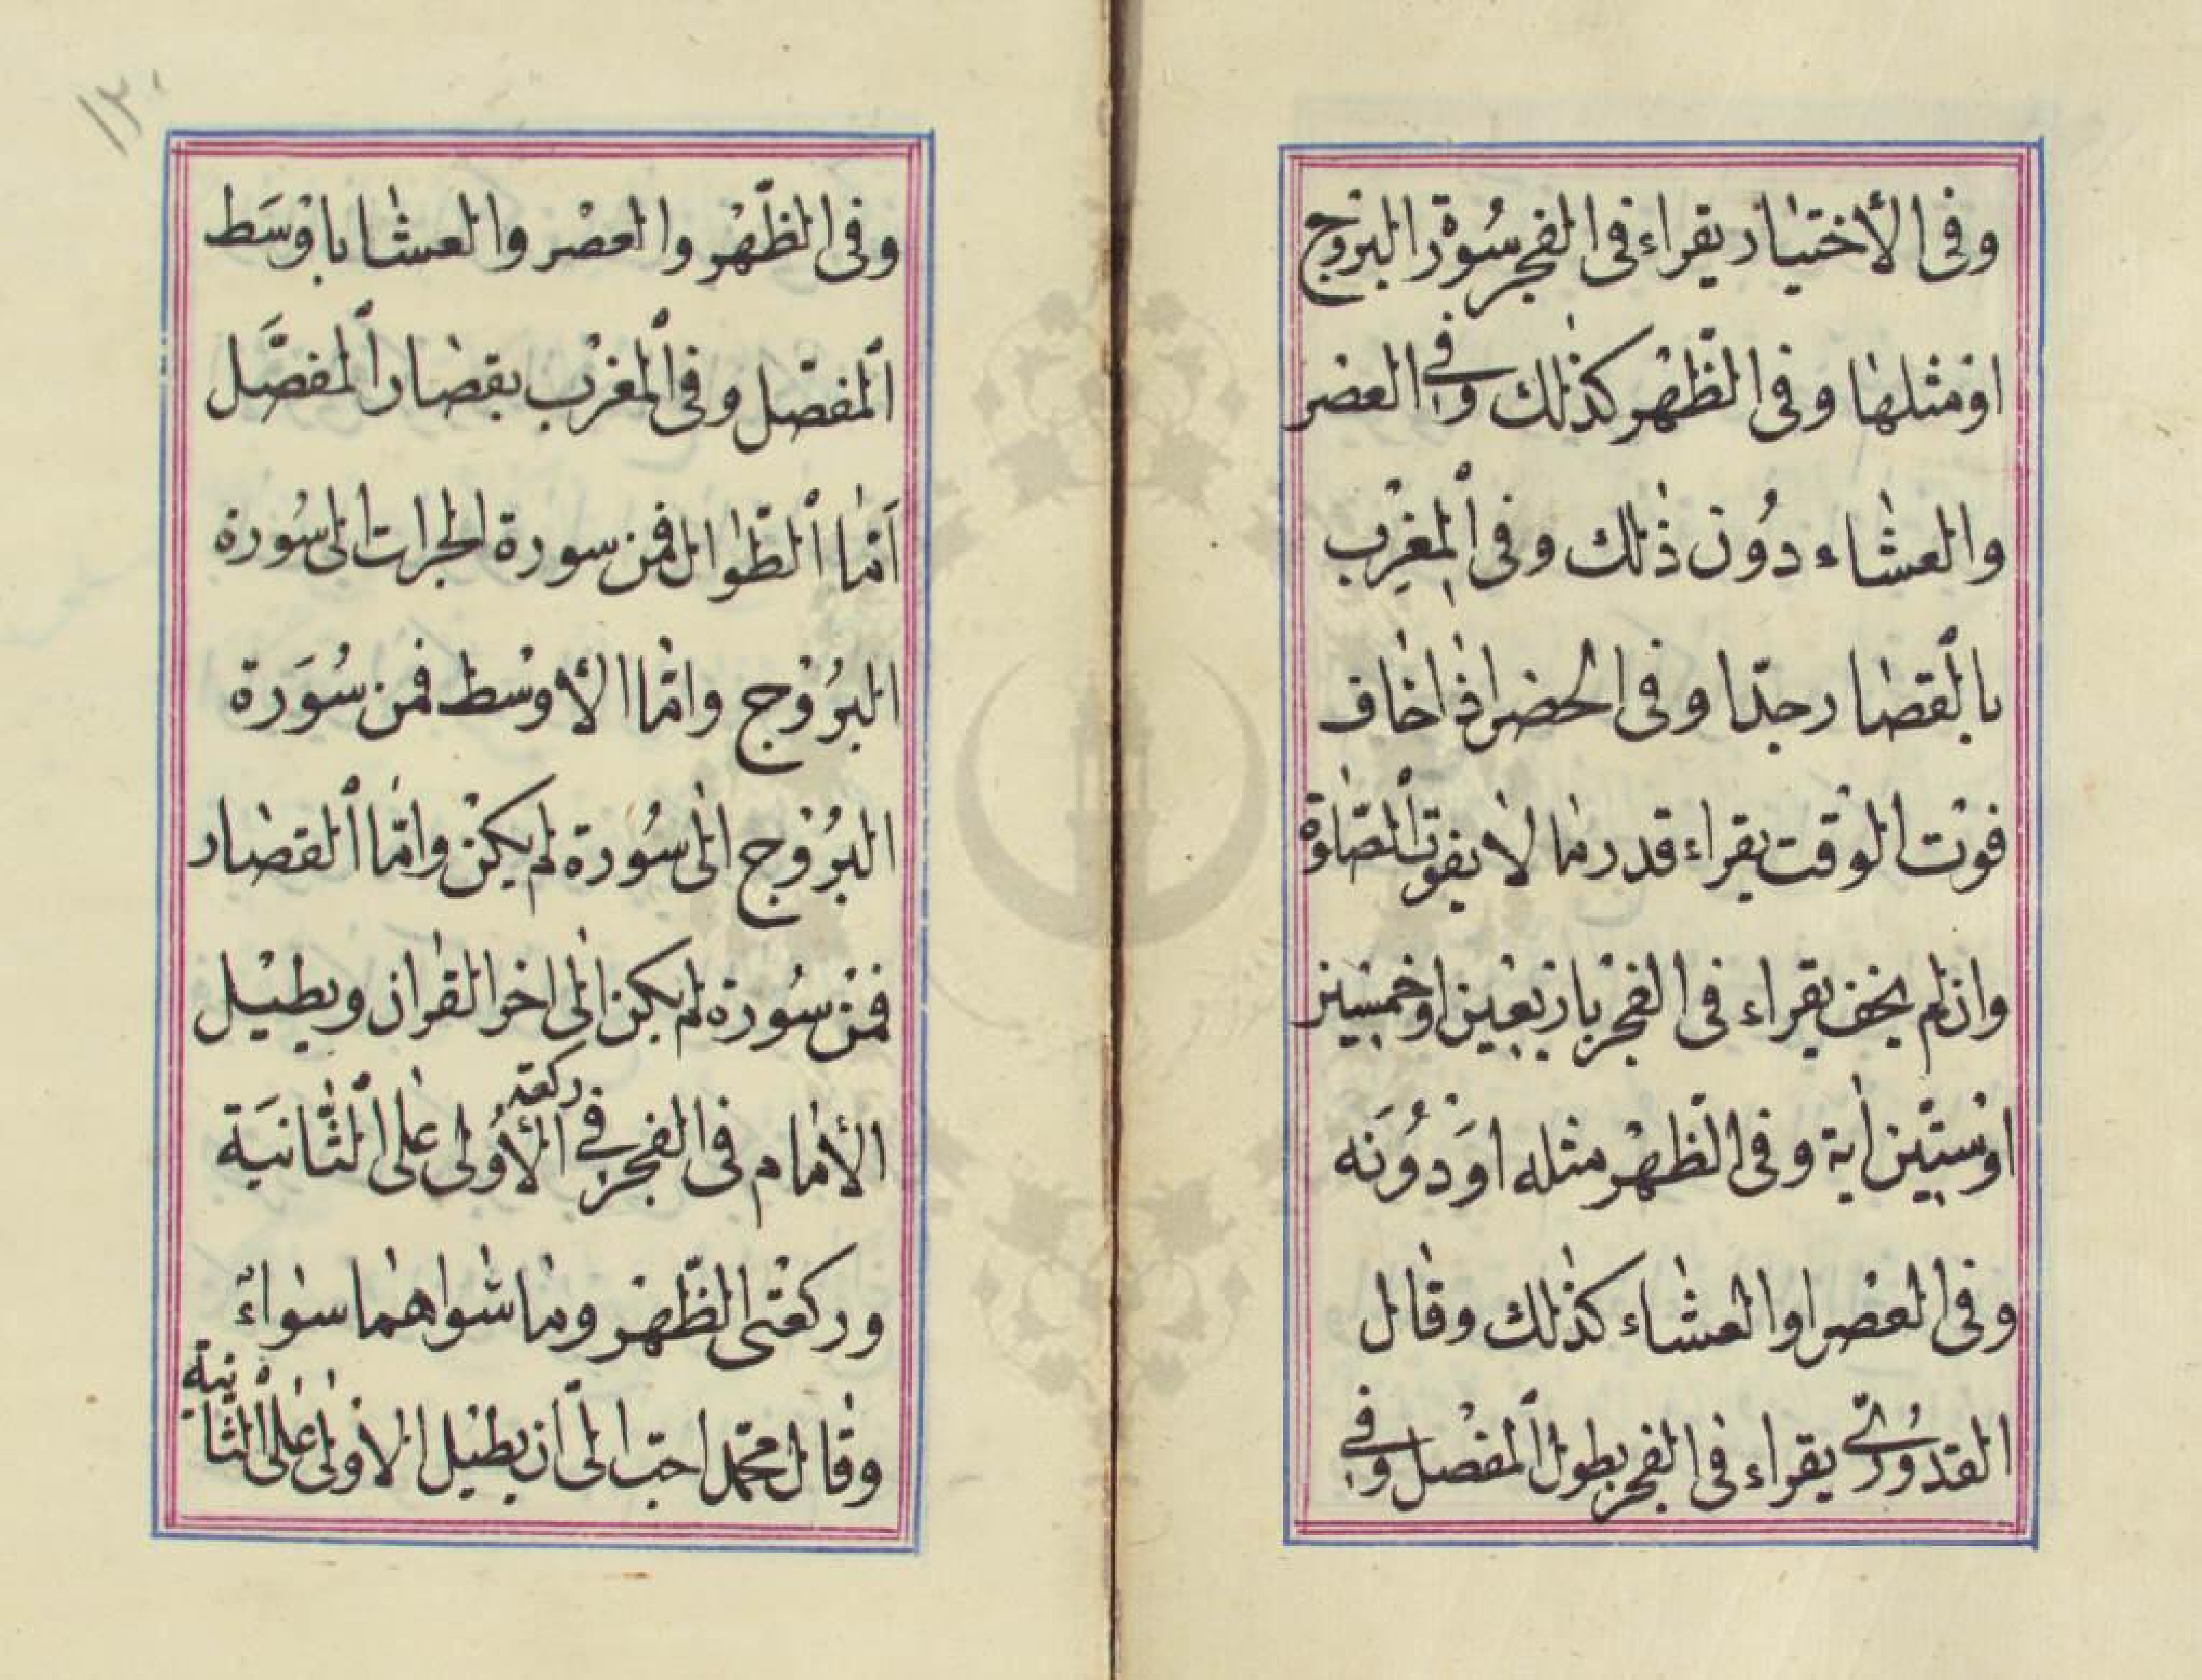 وفى الأختيار يقراء فى الفجر سُوْرة البرُوْج
اوْ مثلها وفى الظّهْر كذٰلك وفى العصْر
والعشٰاء دُوْن ذٰلك وفى ٱلمغْرِب
بالقصٰار جدّا وفى الحضر اذٰا خٰاف
فوْت الوْقت يقراء قدر مٰا لاٰ يفوت ٱلصّلٰوة
وان لم يخف يقراء فى الفجْر باربعيْن اوْ خمسيْن
اوْ ستّيْن اٰية وفى الظّهْر مثله اوَْ دُوْنَه
وفى العصْر اوالعشٰاء كذٰلك وقٰال
القدُوْرىّ يقراء فى الفجْر بطول ٱلمفصْل وفى
١٢٠
وفى الظّهْر والعصْر والعشٰا باوْسَط
ٱلمفصّل وفى ٱلمغرْب بقصٰار ٱلمفصَّل
اَمّٰا ٱلطّوٰال فمن سورة الحجرات الى سُورة
البرُوْج وامّٰا الأوْسٰط فمن سُوَرة
البرُوْج الٰى سُورة لم يكنْ وامّٰا ٱلقصٰار
فمنْ سُورة لم يكن الٰى اخر القرٰان ويطيْل
الأمٰام فى الفجر فى ركعة الأوُلى على ٱلثّٰانيَة
وركعْتى الظّهْر ومٰا سٰواهمٰا سوٰاءٌ
وقٰال محمّد احبّ الىّ ان يطيْل الأوْلٰى علٰى ٱلثّٰانية